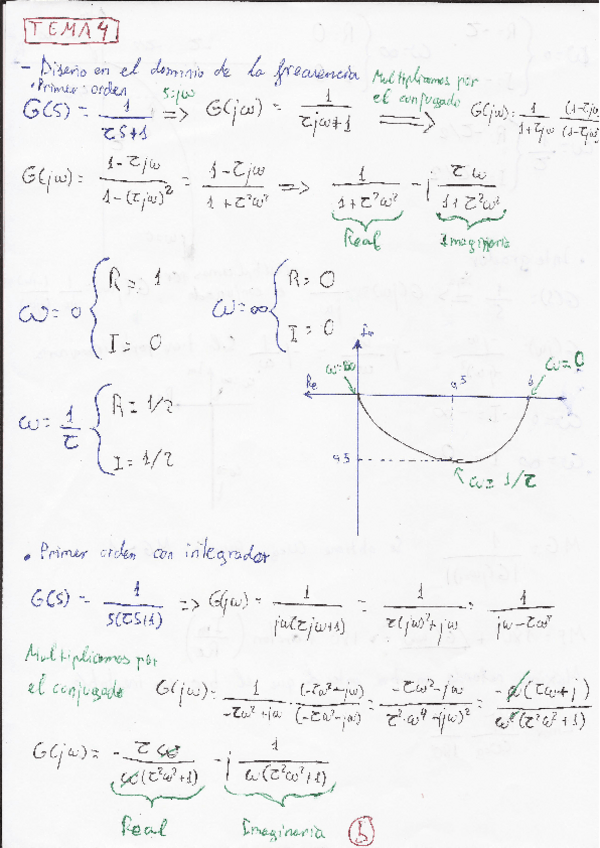 TEMA 4
- Diseño en el dominio de la frecuencia
• Primer orden
G(S) = 1/(τS+1) =>(S=jω) G(jω) = 1/(τjω+1) =>(Multiplicamos por el conjugado) G(jω) = 1/(1+τjω) (1-τjω)/(1-τjω)
G(jω) = (1-τjω)/(1-(τjω)²) = (1-τjω)/(1+τ²ω²) => 1/(1+τ²ω²) - j τω/(1+τ²ω²)
Real Imaginaria
ω=0 { R = 1 I = 0 ω=∞ { R = 0 I = 0
ω = 1/τ { R = 1/2 I = 1/2
Re
ω=∞
ω=0
ω = 1/τ
• Primer orden con integrador
G(S) = 1/(S(τS+1)) => G(jω) = 1/(jω(τjω+1)) = 1/(τ(jω)²+jω) = 1/(jω-τω²)
Multiplicamos por
el conjugado G(jω) = 1/(-τω²+jω) · (-τω²-jω)/(-τω²-jω) = (-τω²-jω)/(τ²·ω⁴-(jω)²) = -ω(τω+j)/(ω²(τ²ω²+1))
G(jω) = - τω/(ω(τ²ω²+1)) - j 1/(ω(τ²ω²+1))
Real Imaginaria